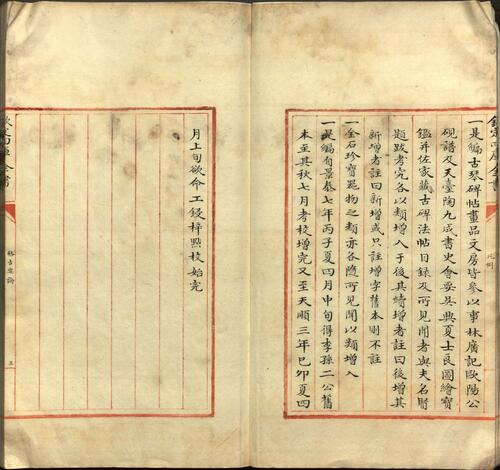 一是編古琴碑帖畫品文房皆參以事林廣記歐陽公
硯譜及天臺陶九成書史會要吳興夏士良圖繪寶
鑑并佐家藏古碑法帖目録及可見聞者與夫名賢
題跋考究各以類增入于後其續增者註曰後增其
新增者註曰新增或只註增字舊本則不註
一金石珍寶器物之類亦各隨可見聞以類增入
一是編自景泰七年丙子夏四月中旬得李孫二公舊
本至其秋七月考校增完又至天順三年己卯夏四
月上旬欲命工鋟梓點校始完
格古要論